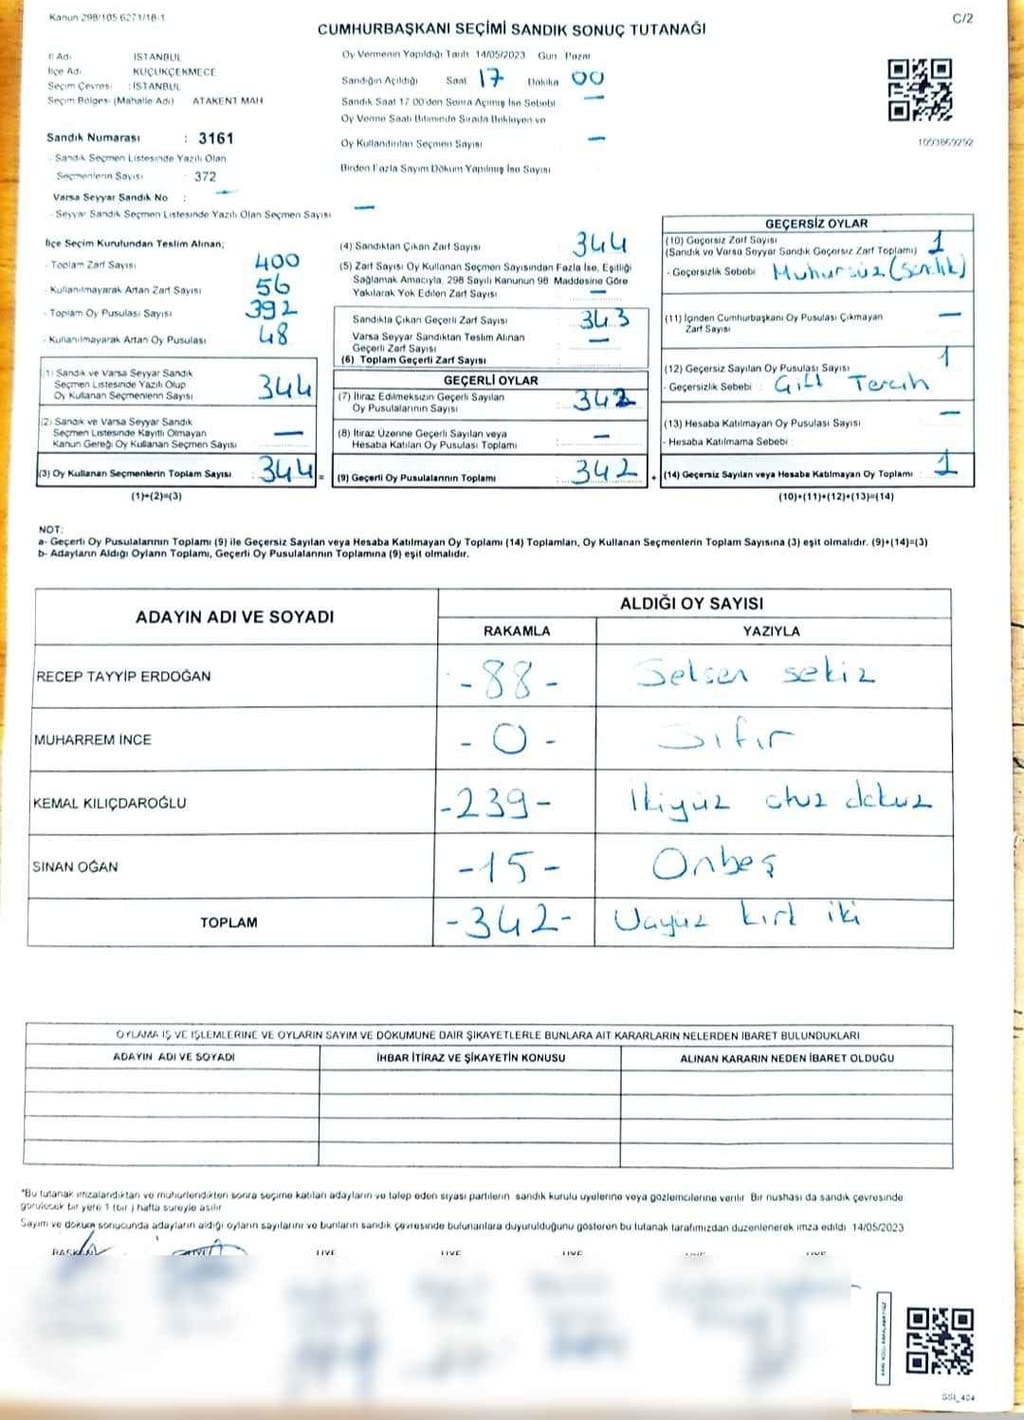 Kanun 298/105 6271/18-1
C/2
CUMHURBAŞKANI SEÇİMİ SANDIK SONUÇ TUTANAĞI
İl Adı: İSTANBUL
İlçe Adı: KÜÇÜKÇEKMECE
Seçim Çevresi: İSTANBUL
Seçim Bölgesi (Mahalle Adı) ATAKENT MAH
Oy Vermenin Yapıldığı Tarih 14/05/2023 Gün Pazar
Sandığın Açıldığı Saat 17 Dakika 00
Sandık Saat 17 00 den Sonra Açılmış İse Sebebi —
Oy Verme Saati Bitiminde Sırada Bekleyen ve
Oy Kullandırılan Seçmen Sayısı —
Birden Fazla Sayım Döküm Yapılmış İse Sayısı
1093869292
Sandık Numarası : 3161
- Sandık Seçmen Listesinde Yazılı Olan
Seçmenlerin Sayısı : 372
Varsa Seyyar Sandık No : —
- Seyyar Sandık Seçmen Listesinde Yazılı Olan Seçmen Sayısı —
İlçe Seçim Kurulundan Teslim Alınan;
- Toplam Zarf Sayısı 400
- Kullanılmayarak Artan Zarf Sayısı 56
- Toplam Oy Pusulası Sayısı 392
- Kullanılmayarak Artan Oy Pusulası 48
(1) Sandık ve Varsa Seyyar Sandık
Seçmen Listesinde Yazılı Olup
Oy Kullanan Seçmenlerin Sayısı 344
(2) Sandık ve Varsa Seyyar Sandık
Seçmen Listesinde Kayıtlı Olmayan
Kanun Gereği Oy Kullanan Seçmen Sayısı —
(3) Oy Kullanan Seçmenlerin Toplam Sayısı 344 =
(1)+(2)=(3)
(4) Sandıktan Çıkan Zarf Sayısı 344
(5) Zarf Sayısı Oy Kullanan Seçmen Sayısından Fazla İse, Eşitliği
Sağlamak Amacıyla, 298 Sayılı Kanunun 98 Maddesine Göre
Yakılarak Yok Edilen Zarf Sayısı —
Sandıkta Çıkan Geçerli Zarf Sayısı 343
Varsa Seyyar Sandıktan Teslim Alınan
Geçerli Zarf Sayısı —
(6) Toplam Geçerli Zarf Sayısı
GEÇERLİ OYLAR
(7) İtiraz Edilmeksizin Geçerli Sayılan
Oy Pusulalarının Sayısı 342
(8) İtiraz Üzerine Geçerli Sayılan veya
Hesaba Katılan Oy Pusulası Toplamı —
(9) Geçerli Oy Pusulalarının Toplamı 342 +
GEÇERSİZ OYLAR
(10) Geçersiz Zarf Sayısı
(Sandık ve Varsa Seyyar Sandık Geçersiz Zarf Toplamı) 1
- Geçersizlik Sebebi : Mühürsüz (Sandık)
(11) İçinden Cumhurbaşkanı Oy Pusulası Çıkmayan
Zarf Sayısı —
(12) Geçersiz Sayılan Oy Pusulası Sayısı 1
- Geçersizlik Sebebi : Gift Tercih
(13) Hesaba Katılmayan Oy Pusulası Sayısı —
- Hesaba Katılmama Sebebi :
(14) Geçersiz Sayılan veya Hesaba Katılmayan Oy Toplamı 1
(10)+(11)+(12)+(13)=(14)
NOT:
a- Geçerli Oy Pusulalarının Toplamı (9) ile Geçersiz Sayılan veya Hesaba Katılmayan Oy Toplamı (14) Toplamları, Oy Kullanan Seçmenlerin Toplam Sayısına (3) eşit olmalıdır. (9)+(14)=(3)
b- Adayların Aldığı Oyların Toplamı, Geçerli Oy Pusulalarının Toplamına (9) eşit olmalıdır.
ADAYIN ADI VE SOYADI
ALDIĞI OY SAYISI
RAKAMLA YAZIYLA
RECEP TAYYİP ERDOĞAN -88- Seksen sekiz
MUHARREM İNCE -0- Sıfır
KEMAL KILIÇDAROĞLU -239- İkiyüz otuz dokuz
SİNAN OĞAN -15- Onbeş
TOPLAM -342- Üçyüz kırk iki
OYLAMA İŞ VE İŞLEMLERİNE VE OYLARIN SAYIM VE DÖKÜMÜNE DAİR ŞİKAYETLERLE BUNLARA AİT KARARLARIN NELERDEN İBARET BULUNDUKLARI
ADAYIN ADI VE SOYADI İHBAR İTİRAZ VE ŞİKAYETİN KONUSU ALINAN KARARIN NEDEN İBARET OLDUĞU
*Bu tutanak imzalandıktan ve mühürlendikten sonra seçime katılan adayların ve talep eden siyasi partilerin sandık kurulu üyelerine veya gözlemcilerine verilir Bir nüshası da sandık çevresinde
görülecek bir yere 1 (bir ) hafta süreyle asılır
Sayım ve döküm sonucunda adayların aldığı oyların sayılarını ve bunların sandık çevresinde bulunanlara duyurulduğunu gösteren bu tutanak tarafımızdan düzenlenerek imza edildi 14/05/2023
BAŞKAN ÜYE ÜYE ÜYE ÜYE ÜYE
SSI_404